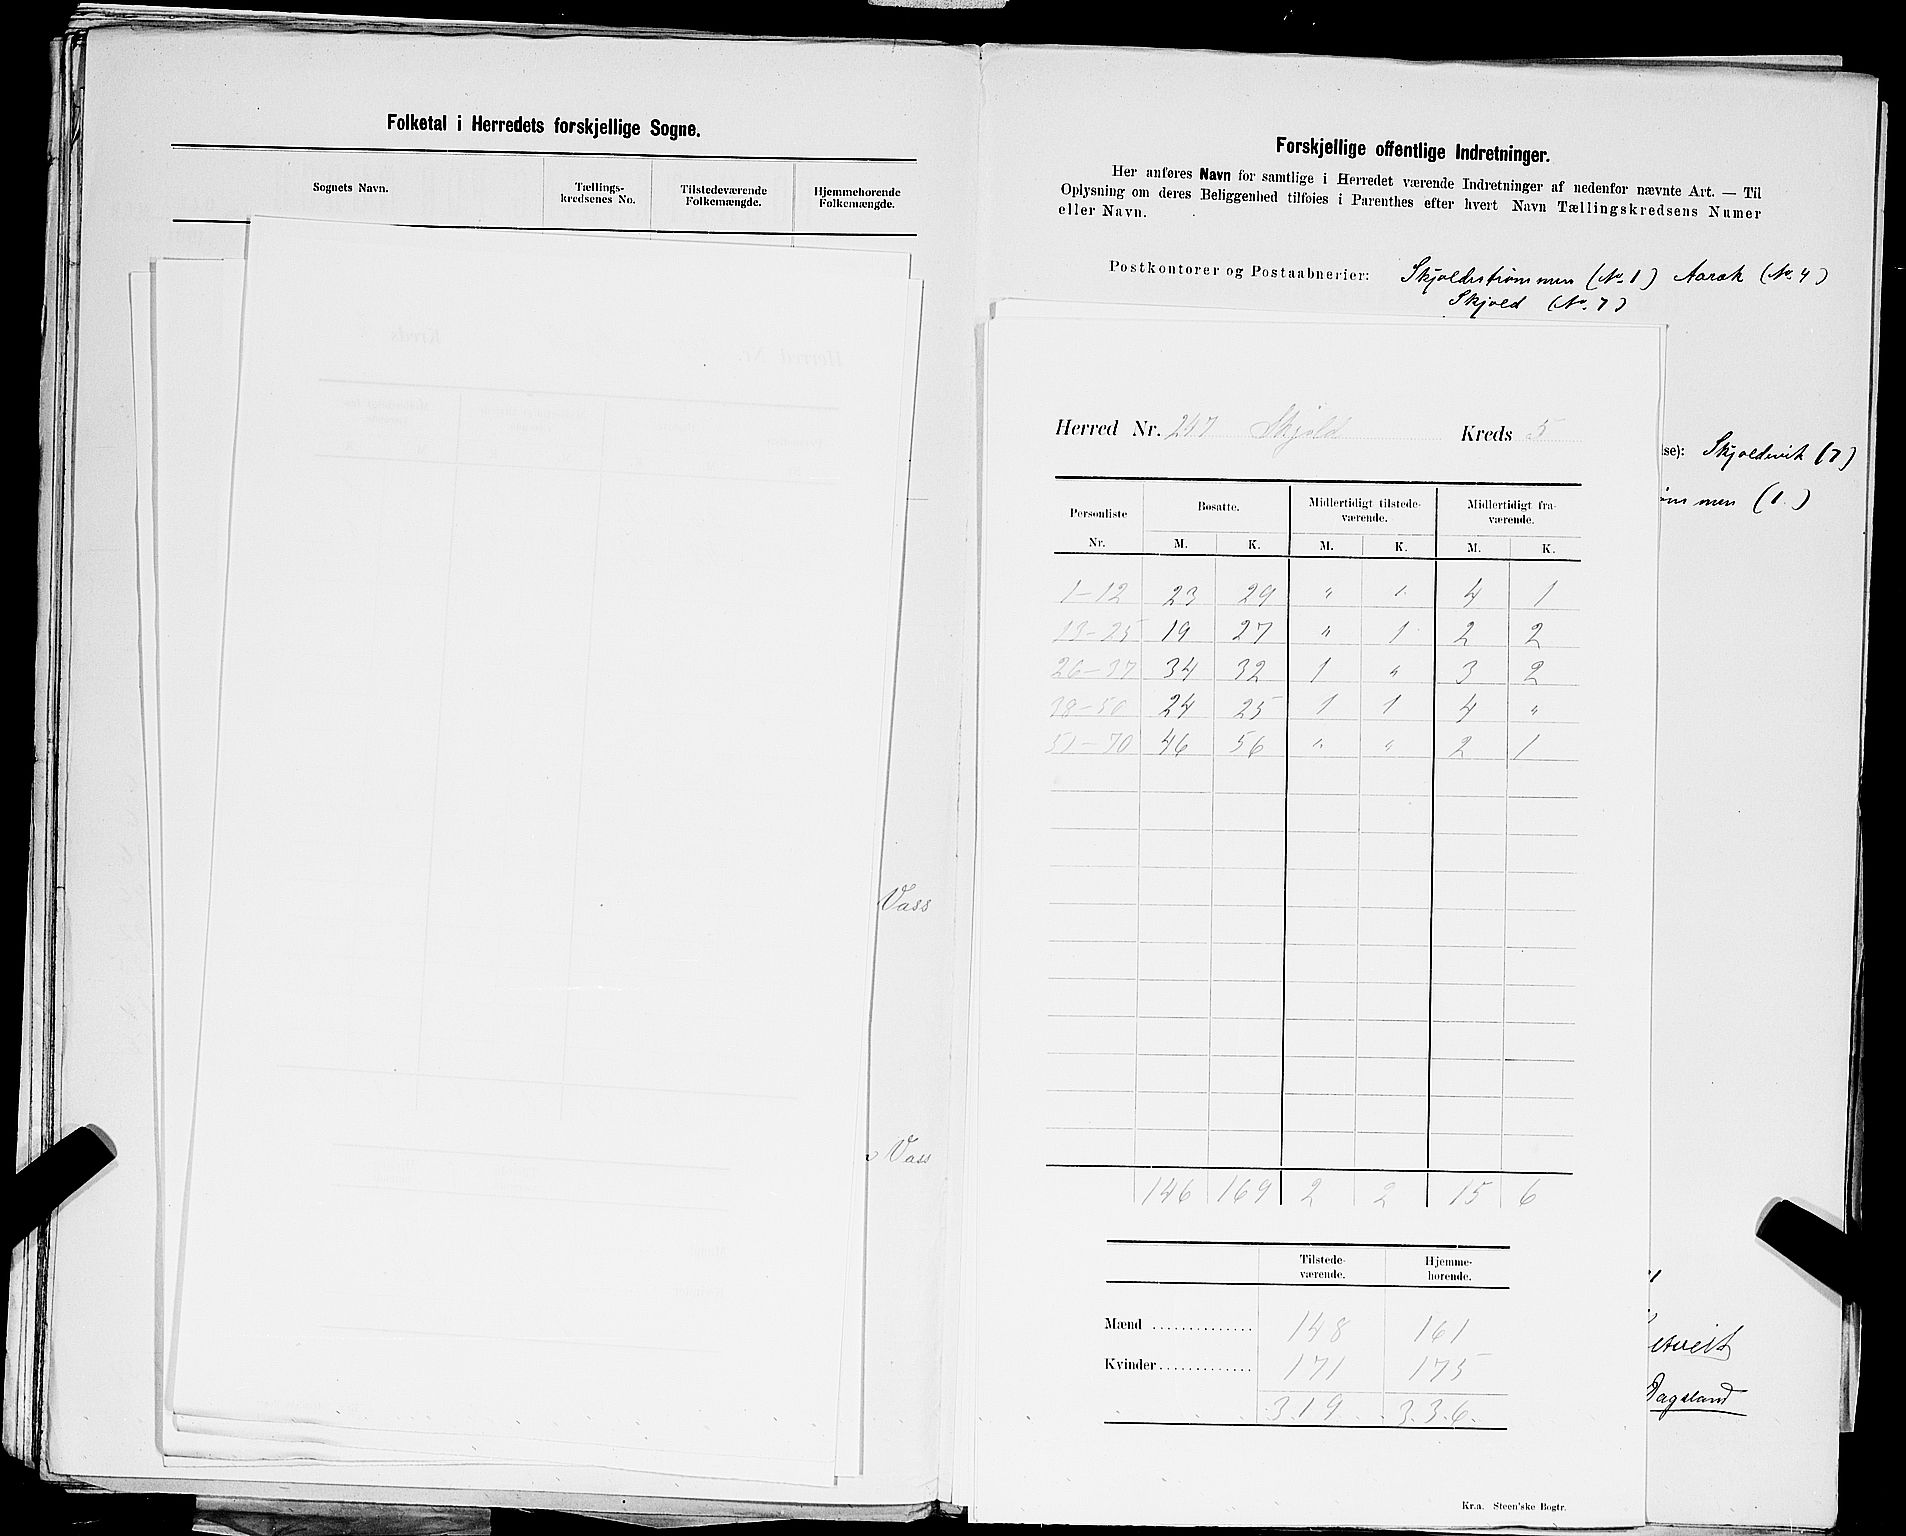 Folketal i Herredets forskjellige Sogne.
Sognets Navn. Tællings-kredsenes No. Tilstedeværende Folkemængde. Hjemmehørende Folkemængde.
Vass
Vass
Forskjellige offentlige Indretninger.
Her anføres Navn for samtlige i Herredet værende Indretninger af nedenfor nævnte Art. — Til
Oplysning om deres Beliggenhed tilføies i Parenthes efter hvert Navn Tællingskredsens Numer
eller Navn.
Postkontorer og Postaabnerier: Skjoldestrømmen (No. 1) Aarak (No. 4)
Skjold (No. 7)
lse): Skjoldevik (7)
ømmen (1.)
Herred Nr. 247 Skjold Kreds 5
Personliste Nr. Bosatte. Midlertidigt tilstede-værende. Midlertidigt fra-værende.
M. K. M. K. M. K.
1-12 23 29 " 1 4 1
13-25 19 27 " 1 2 2
26-37 34 32 1 " 3 2
38-50 24 25 1 1 4 "
51-70 46 56 " " 2 1
146 169 2 2 15 6
Tilstede-værende. Hjemme-hørende.
Mænd .............. 148 161
Kvinder ............. 171 175
319 336
Dagsland
Kr.a. Steen'ske Bogtr.